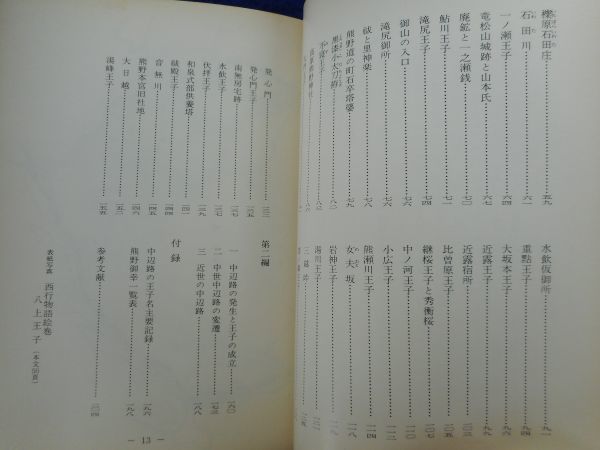 櫟原石田庄 五九
石田川 六一
一ノ瀬王子 六四
竜松山城跡と山本氏 六七
廃鉱と一之瀬銭
鮎川王子
滝尻王子 七四
滝尻御所
御山の入口 七六
祓と里神楽 七八
熊野道の町石卒塔婆 七八
黒漆小太刀拵 八一
水飲仮御所 九一
重點王子 九四
大坂本王子 九六
近露王子 九九
近露宿所
比曽原王子 一〇五
継桜王子と秀衡桜 一〇七
中ノ河王子 一一二
小広王子 一一三
熊瀬川王子 一一四
女夫坂 一一八
岩神王子 一一九
湯川王子
三越峠
発心門 一三三
発心門王子
南無房宅跡 一三五
水飲王子 一三七
伏拝王子
和泉式部供養塔
祓殿王子
音無川 一四五
熊野本宮旧社地 一四六
大日越 一五二
湯峰王子 一五五
第二編
一 中辺路の発生と王子の成立 一六〇
二 中世中辺路の変遷 一七三
三 近世の中辺路 一八八
付録
中辺路の王子名主要記録
熊野御幸一覧表 一九八
参考文献 二〇四
表紙写真 西行物語絵巻
八上王子 (本文50頁)
― 13 ―